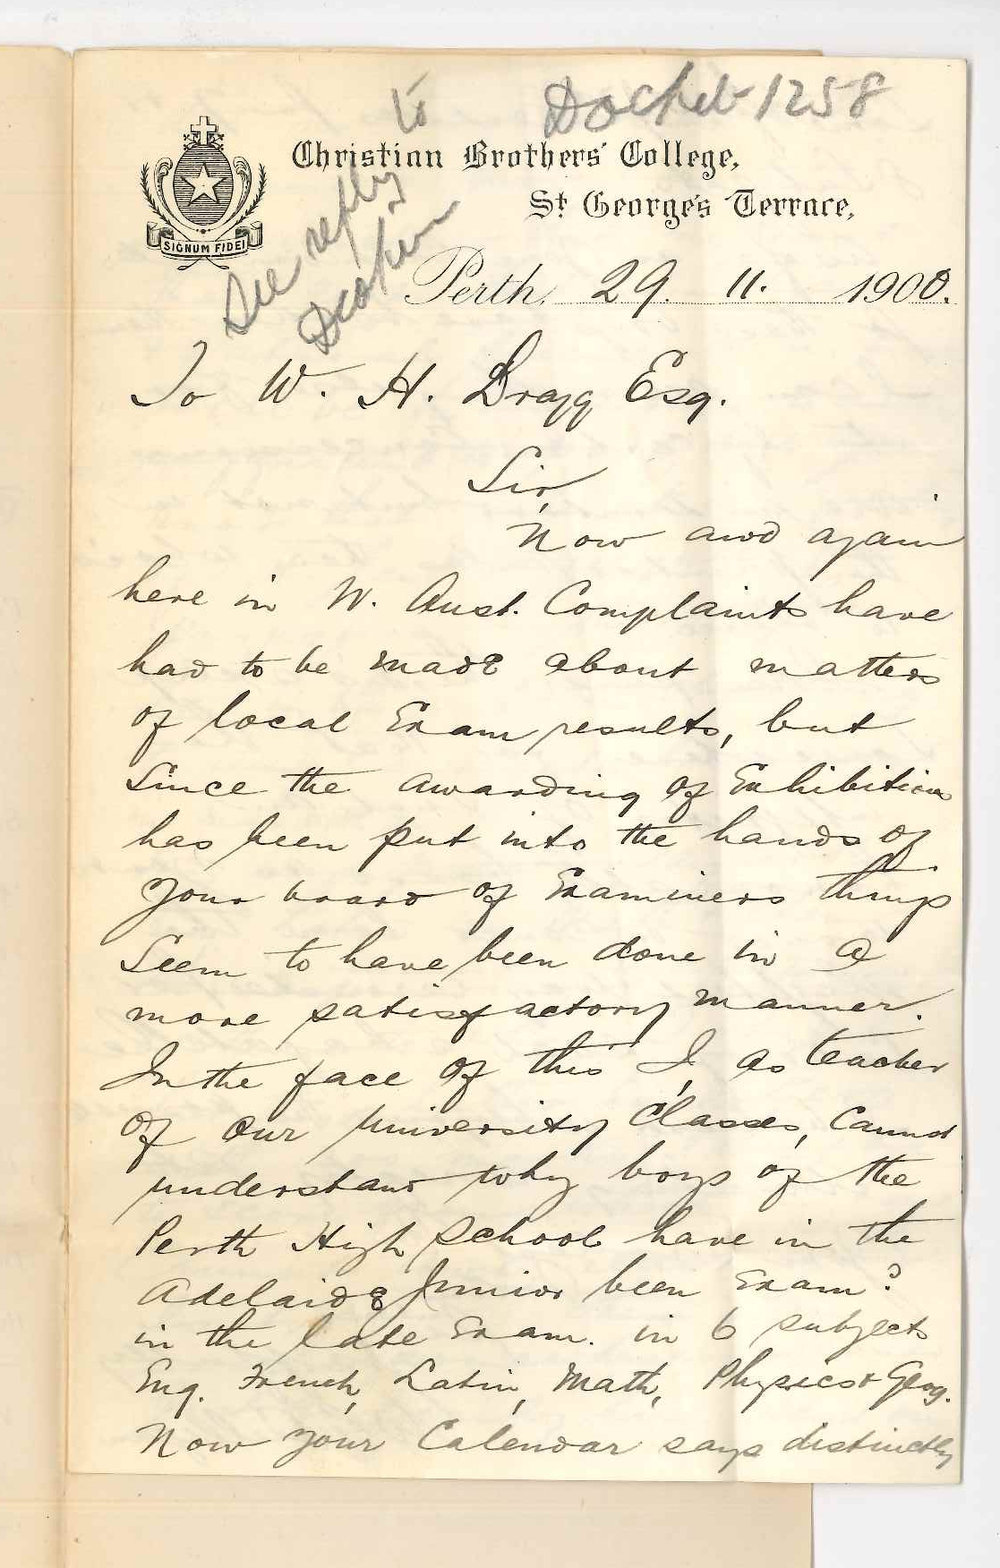 Docket 1258
See reply to
Deakin
Christian Brothers' College,
St. George's Terrace,
SIGNUM FIDEI
Perth, 29. 11. 1900.
To W. H. Bragg Esq.
Sir,
Now and again
here in W. Aust. Complaints have
had to be made about matters
of local Exam results, but
since the awarding of Exhibitions
has been put into the hands of
your board of Examiners things
seem to have been done in a
more satisfactory manner.
In the face of this I, as teacher
of our University Classes, cannot
understand why boys of the
Perth High School have in the
Adelaide Junior been Exam?
in the late Exam. in 6 subjects
Eng. French, Latin, Math, Physics & Geog.
Now your Calendar says distinctly